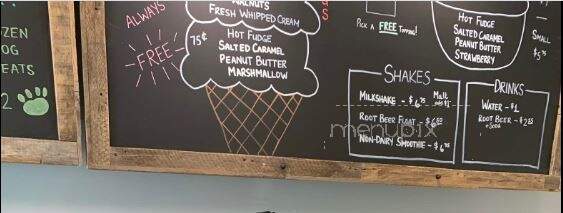 WALNUTS
FRESH WHIPPED CREAM
ALWAYS
FREE
75¢
HOT FUDGE
SALTED CARAMEL
PEANUT BUTTER
MARSHMALLOW
GS
PICK A FREE TOPPING!
HOT FUDGE
SALTED CARAMEL
PEANUT BUTTER
STRAWBERRY
SMALL
ZEN
OG
EATS
2
SHAKES
MILKSHAKE - $6.75 MALT
ROOT BEER FLOAT -
NON-DAIRY SMOOTHIE - $6.75
DRINKS
WATER - $1
ROOT BEER -
menupix